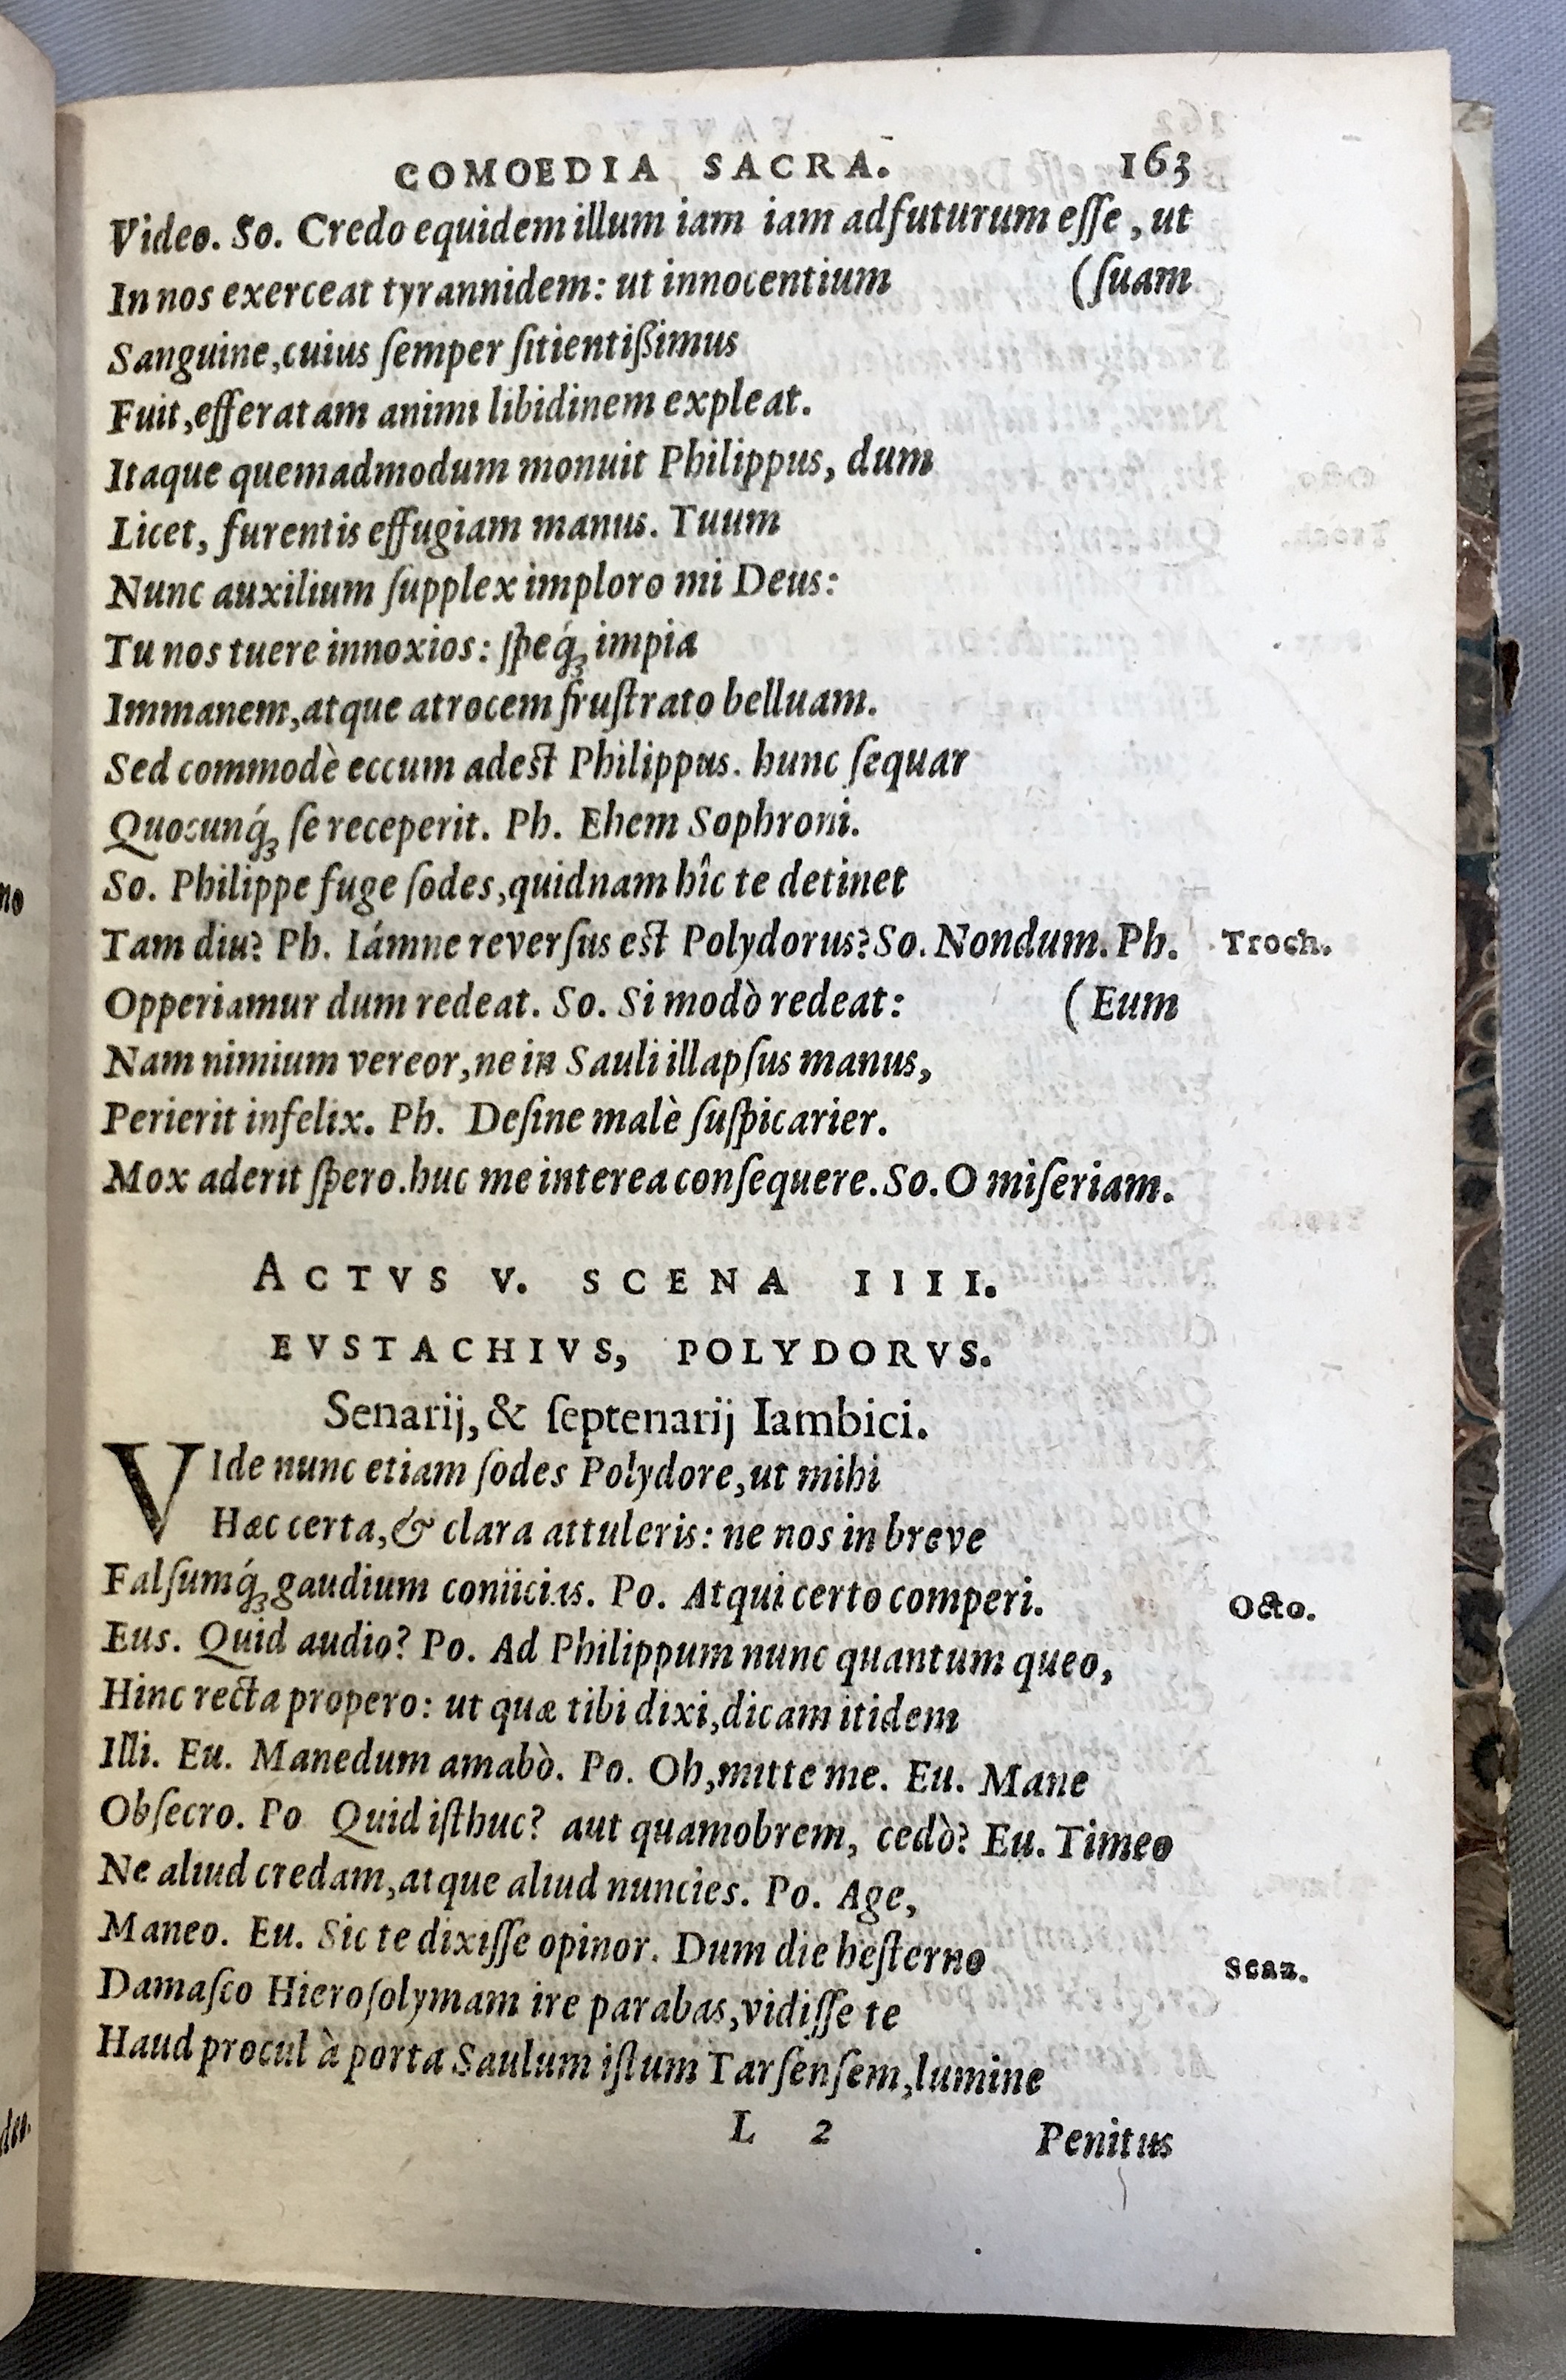 COMOEDIA SACRA. 163
Video. So. Credo equidem illum iam iam adfuturum eſſe, ut
In nos exerceat tyrannidem: ut innocentium (ſuam
Sanguine, cuius ſemper ſitientißimus
Fuit, efferatam animi libidinem expleat.
Itaque quemadmodum monuit Philippus, dum
Licet, furentis effugiam manus. Tuum
Nunc auxilium ſupplex imploro mi Deus:
Tu nos tuere innoxios: ſpeq́ꝫ impia
Immanem, atque atrocem fruſtrato belluam.
Sed commodè eccum adest Philippus. hunc ſequar
Quocunq́ꝫ ſe receperit. Ph. Ehem Sophroni.
So. Philippe fuge ſodes, quidnam hîc te detinet
Tam diu? Ph. Iámne reverſus est Polydorus? So. Nondum. Ph. Troch.
Opperiamur dum redeat. So. Si modò redeat: (Eum
Nam nimium vereor, ne in Sauli illapſus manus,
Perierit infelix. Ph. Deſine malè ſuſpicarier.
Mox aderit ſpero. huc me interea conſequere. So. O miſeriam.
ACTVS V. SCENA IIII.
EVSTACHIVS, POLYDORVS.
Senarij, & ſeptenarij Iambici.
VIde nunc etiam ſodes Polydore, ut mihi
Hæc certa, & clara attuleris: ne nos in breve
Falſumq́ꝫ gaudium coniicias. Po. Atqui certo comperi. Octo.
Eus. Quid audio? Po. Ad Philippum nunc quantum queo,
Hinc recta propero: ut quæ tibi dixi, dicam itidem
Illi. Eu. Manedum amabò. Po. Oh, mitte me. Eu. Mane
Obſecro. Po Quid iſthuc? aut quamobrem, cedò? Eu. Timeo
Ne aliud credam, atque aliud nuncies. Po. Age,
Maneo. Eu. Sic te dixiſſe opinor. Dum die heſterno Scaz.
Damaſco Hieroſolymam ire parabas, vidiſſe te
Haud procul à porta Saulum iſtum Tarſenſem, lumine
L 2 Penitus